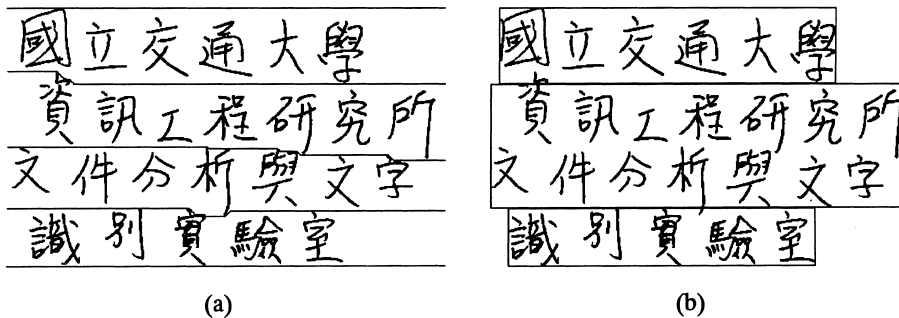 國立交通大學
資訊工程研究所
文件分析與文字
識別實驗室
(a)
國立交通大學
資訊工程研究所
文件分析與文字
識別實驗室
(b)